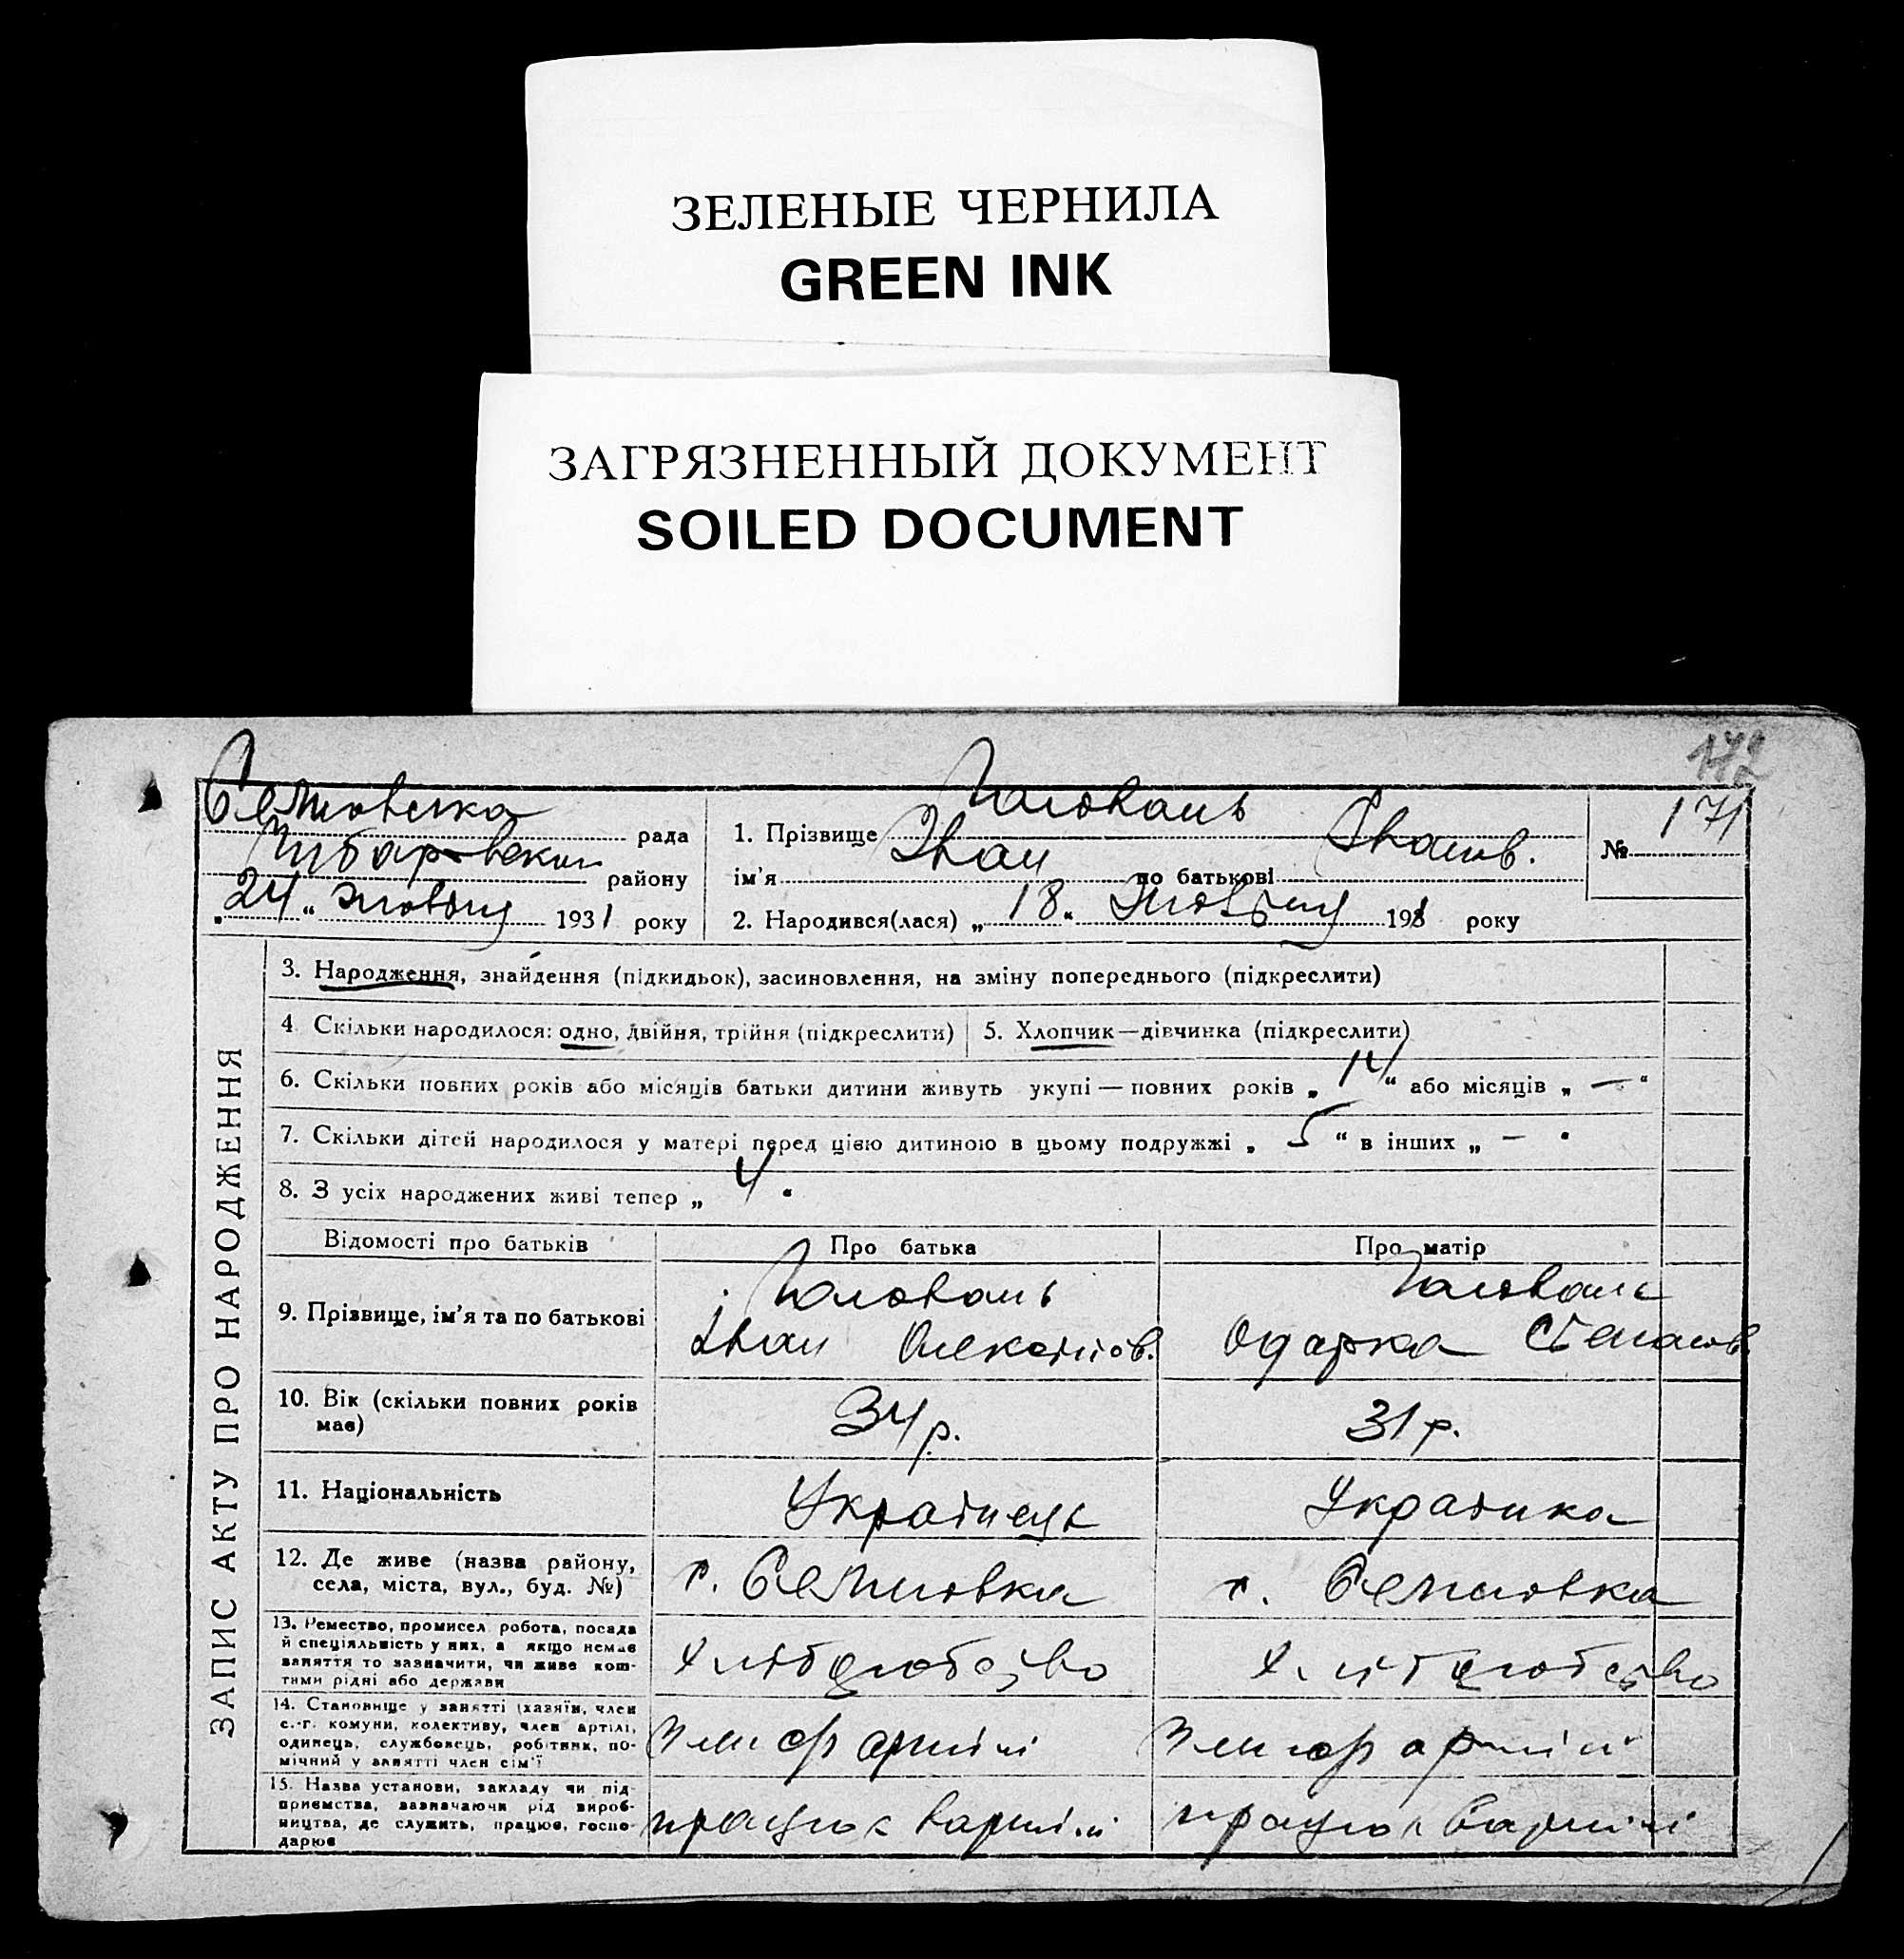 ЗЕЛЕНЫЕ ЧЕРНИЛА
GREEN INK
ЗАГРЯЗНЕННЫЙ ДОКУМЕНТ
SOILED DOCUMENT
172
рада
району
"24" жовтня 1931 року
1. Прізвище Головань
ім'я Іван по батькові Іванов.
№ 171
2. Народився(лася) „18" Жовтня 1931 року
ЗАПИС АКТУ ПРО НАРОДЖЕННЯ
3. Народження, знайдення (підкидьок), засиновлення, на зміну попереднього (підкреслити)
4 Скільки народилося: одно, двійня, трійня (підкреслити)
5. Хлопчик—дівчинка (підкреслити)
6. Скільки повних років або місяців батьки дитини живуть укупі — повних років „14" або місяців „—"
7. Скільки дітей народилося у матері перед цією дитиною в цьому подружжі „5" в інших „—"
8. З усіх народжених живі тепер „4"
Відомості про батьків
Про батька
Про матір
9. Прізвище, ім'я та по батькові
Головань
Іван
Головань
Одарка Степанов.
10. Вік (скільки повних років має)
34 р.
31 р.
11. Національність
Українець
Українка
12. Де живе (назва району, села, міста, вул., буд. №)
с. Семеновка
с. Семеновка
13. Ремество, промисел робота, посада й спеціяльність у них, а якщо немає заняття то зазначити, чи живе коштами рідні або держави
хліборобство
хліборобство
14. Становище у занятті (хазяїн, член с.-г. комуни, колективу, член артілі, одинець, службовець, робітник, помічний у занятті член сім'ї
Член артілі
Член артілі
15. Назва установи, закладу чи підприємства, зазначаючи рід виробництва, де служить, працює, господарює
працює в артілі
працює в артілі